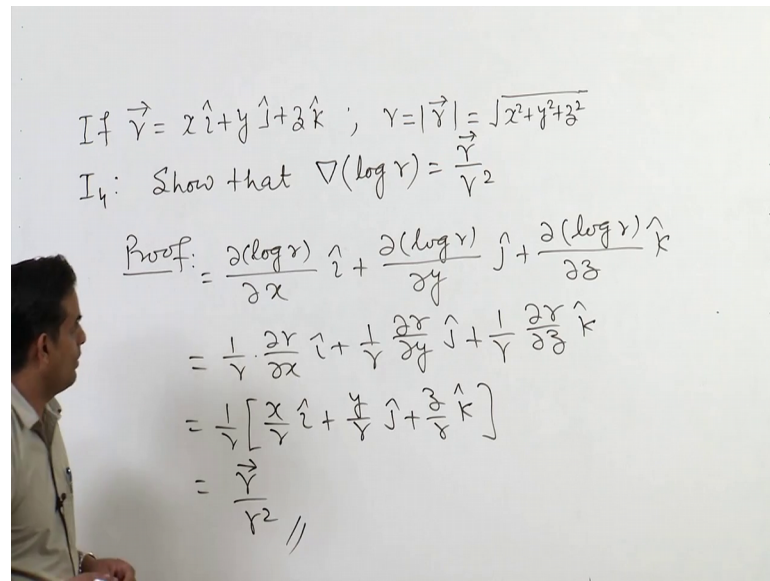 If r⃗ = xî+yĵ+zk̂ ; r=|r⃗|=√x²+y²+z²
I₄: Show that ∇(log r) = r⃗/r²
Proof: = ∂(log r)/∂x î + ∂(log r)/∂y ĵ + ∂(log r)/∂z k̂
= 1/r · ∂r/∂x î + 1/r ∂r/∂y ĵ + 1/r ∂r/∂z k̂
= 1/r [x/r î + y/r ĵ + z/r k̂]
= r⃗/r² //